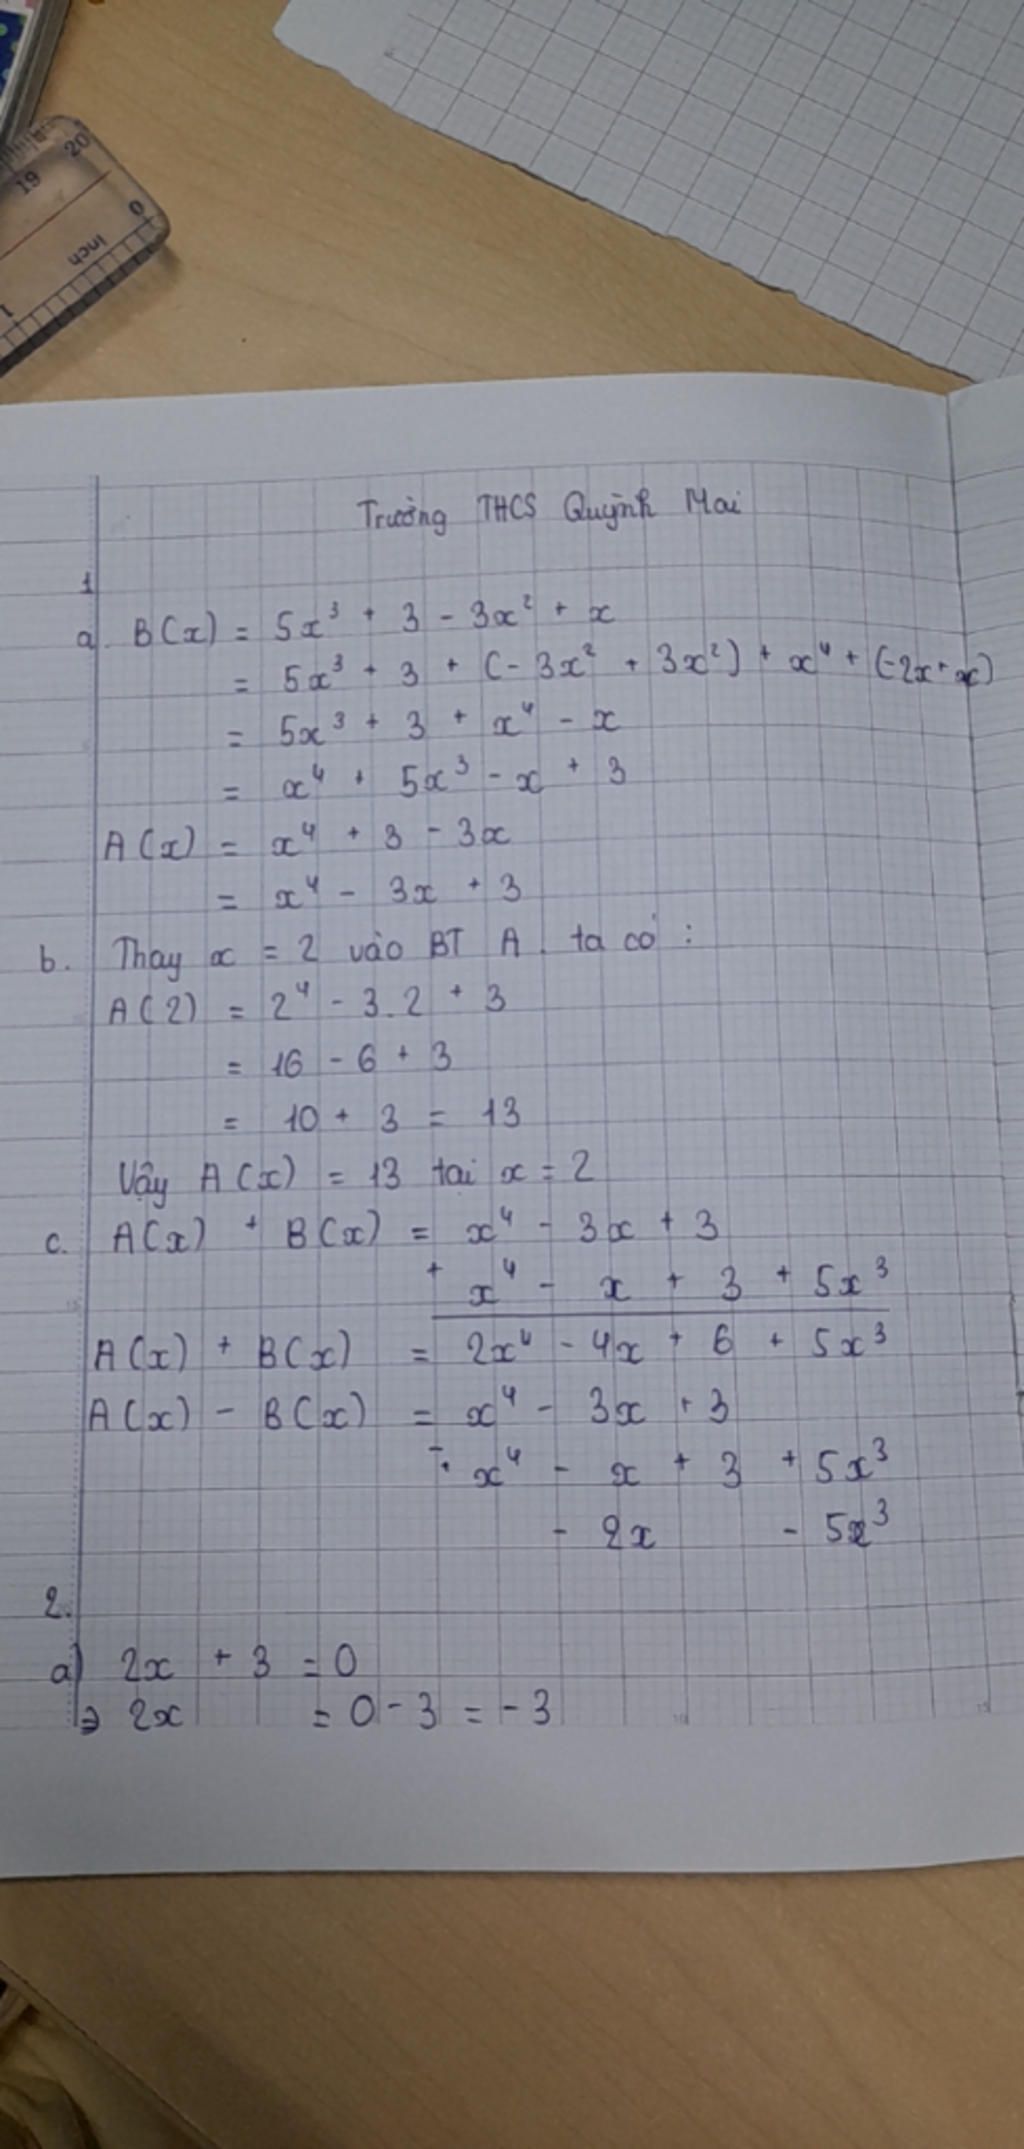 20
19
0
inch
1
Trường THCS Quỳnh Mai
1
a. B(x) = 5x³ + 3 - 3x² + x
= 5x³ + 3 + (-3x² + 3x²) + x⁴ + (-2x + x)
= 5x³ + 3 + x⁴ - x
= x⁴ + 5x³ - x + 3
A(x) = x⁴ + 3 - 3x
= x⁴ - 3x + 3
b. Thay x = 2 vào BT A. ta có :
A(2) = 2⁴ - 3.2 + 3
= 16 - 6 + 3
= 10 + 3 = 13
Vậy A(x) = 13 tại x = 2
c. A(x) + B(x) = x⁴ - 3x + 3
+ x⁴ - x + 3 + 5x³
A(x) + B(x) = 2x⁴ - 4x + 6 + 5x³
A(x) - B(x) = x⁴ - 3x + 3
- x⁴ - x + 3 + 5x³
- 2x - 5x³
2.
a) 2x + 3 = 0
⇒ 2x = 0 - 3 = -3